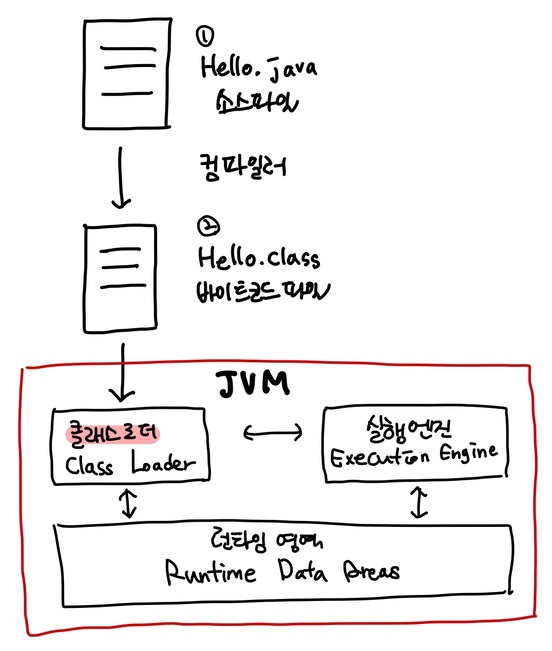 ①
Hello.java
소스파일
컴파일러
②
Hello.class
바이트코드 파일
JVM
클래스로더
Class Loader
실행엔진
Execution Engine
런타임 영역
Runtime Data Areas